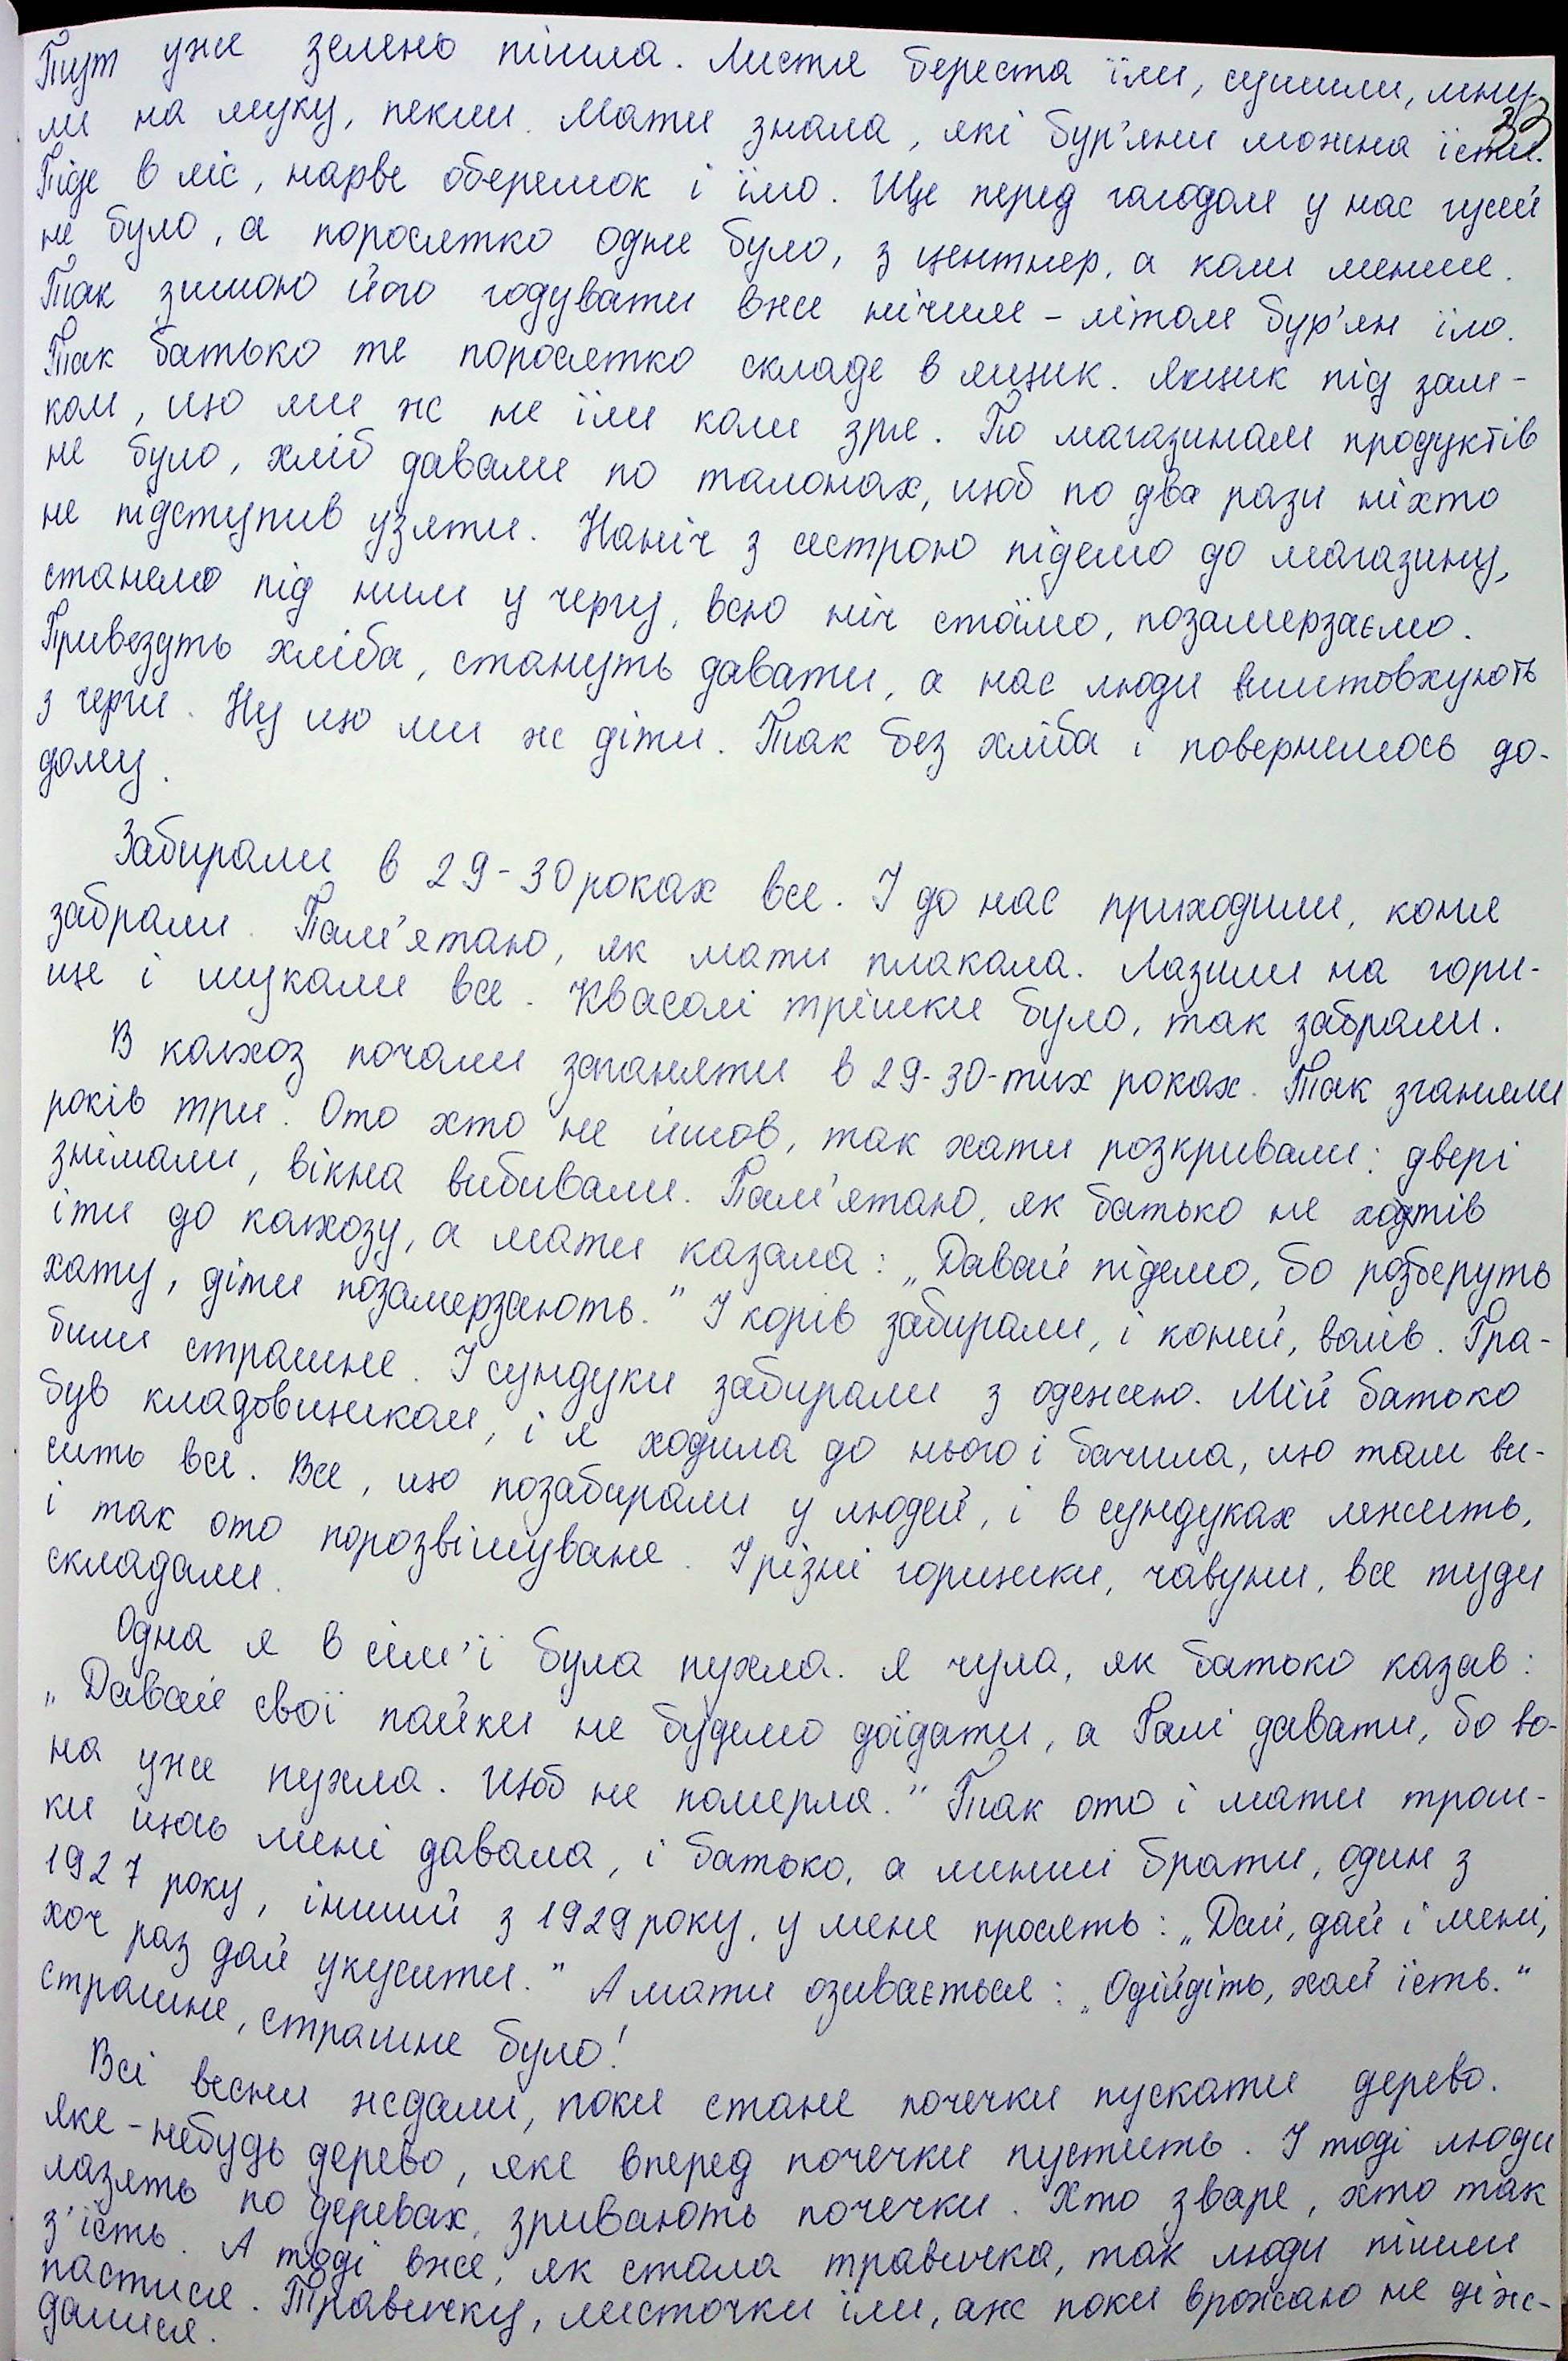 33
Тут уже зелень пішла. Листя береста їли, сушили, мну-
ли на муку, пекли. Мати знала, які бур'яни можна їсти.
Піде в ліс, нарве оберемок і їмо. Ще перед голодом у нас гусей
не було, а поросятко одне було, з центнер, а коли менше.
Так зимою його годувати вже нічим – літом бур'ян їло.
Так батько те поросятко складе в ящик. Ящик під зам-
ком, що ми ж не їли коли зря. По магазинам продуктів
не було, хліб давали по талонах, щоб по два рази ніхто
не підступив узяти. Наніч з сестрою підемо до магазину,
станемо під ним у чергу, всю ніч стоїмо, позамерзаємо.
Привезуть хліба, стануть давати, а нас люди виштовхують
з черги. Ну що ми ж діти. Так без хліба і повернемось до-
дому.
Забирали в 29-30 роках все. І до нас приходили, коня
забрали. Пам'ятаю, як мати плакала. Лазили на гори-
ще і шукали все. Квасолі трішки було, так забрали.
В колхоз почали заганяти в 29-30-тих роках. Так зганяли
років три. Ото хто не йшов, так хати розкривали: двері
знімали, вікна вибивали. Пам'ятаю, як батько не хотів
іти до колхозу, а мати казала: „Давай підемо, бо розберуть
хату, діти позамерзають." І корів забирали, і коней, волів. Гра-
били страшне. І сундуки забирали з одежею. Мій батько
був кладовщиком, і я ходила до нього і бачила, що там ви-
сить все. Все, що позабирали у людей, і в сундуках лежить,
і так ото порозвішуване. І різні горщики, чавуни, все туди
складали.
Одна я в сім'ї була пухла. Я чула, як батько казав:
„Давай свої пайки не будемо доїдати, а Галі давати, бо во-
на уже пухла. Щоб не померла." Так ото і мати трош-
ки щось мені давала, і батько, а менші брати, один з
1927 року, інший з 1929 року, у мене просять: „Дай, дай і мені,
хоч раз дай укусити." А мати озивається: „Одійдіть, хай їсть."
Страшне, страшне було!
Всі весни ждали, поки стане почечки пускати дерево.
Яке-небудь дерево, яке вперед почечки пустить. І тоді люди
лазять по деревах, зривають почечки. Хто зваре, хто так
з'їсть. А тоді вже, як стала травичка, так люди пішли
пастися. Травичку, листочки їли, аж поки врожаю не діж-
далися.